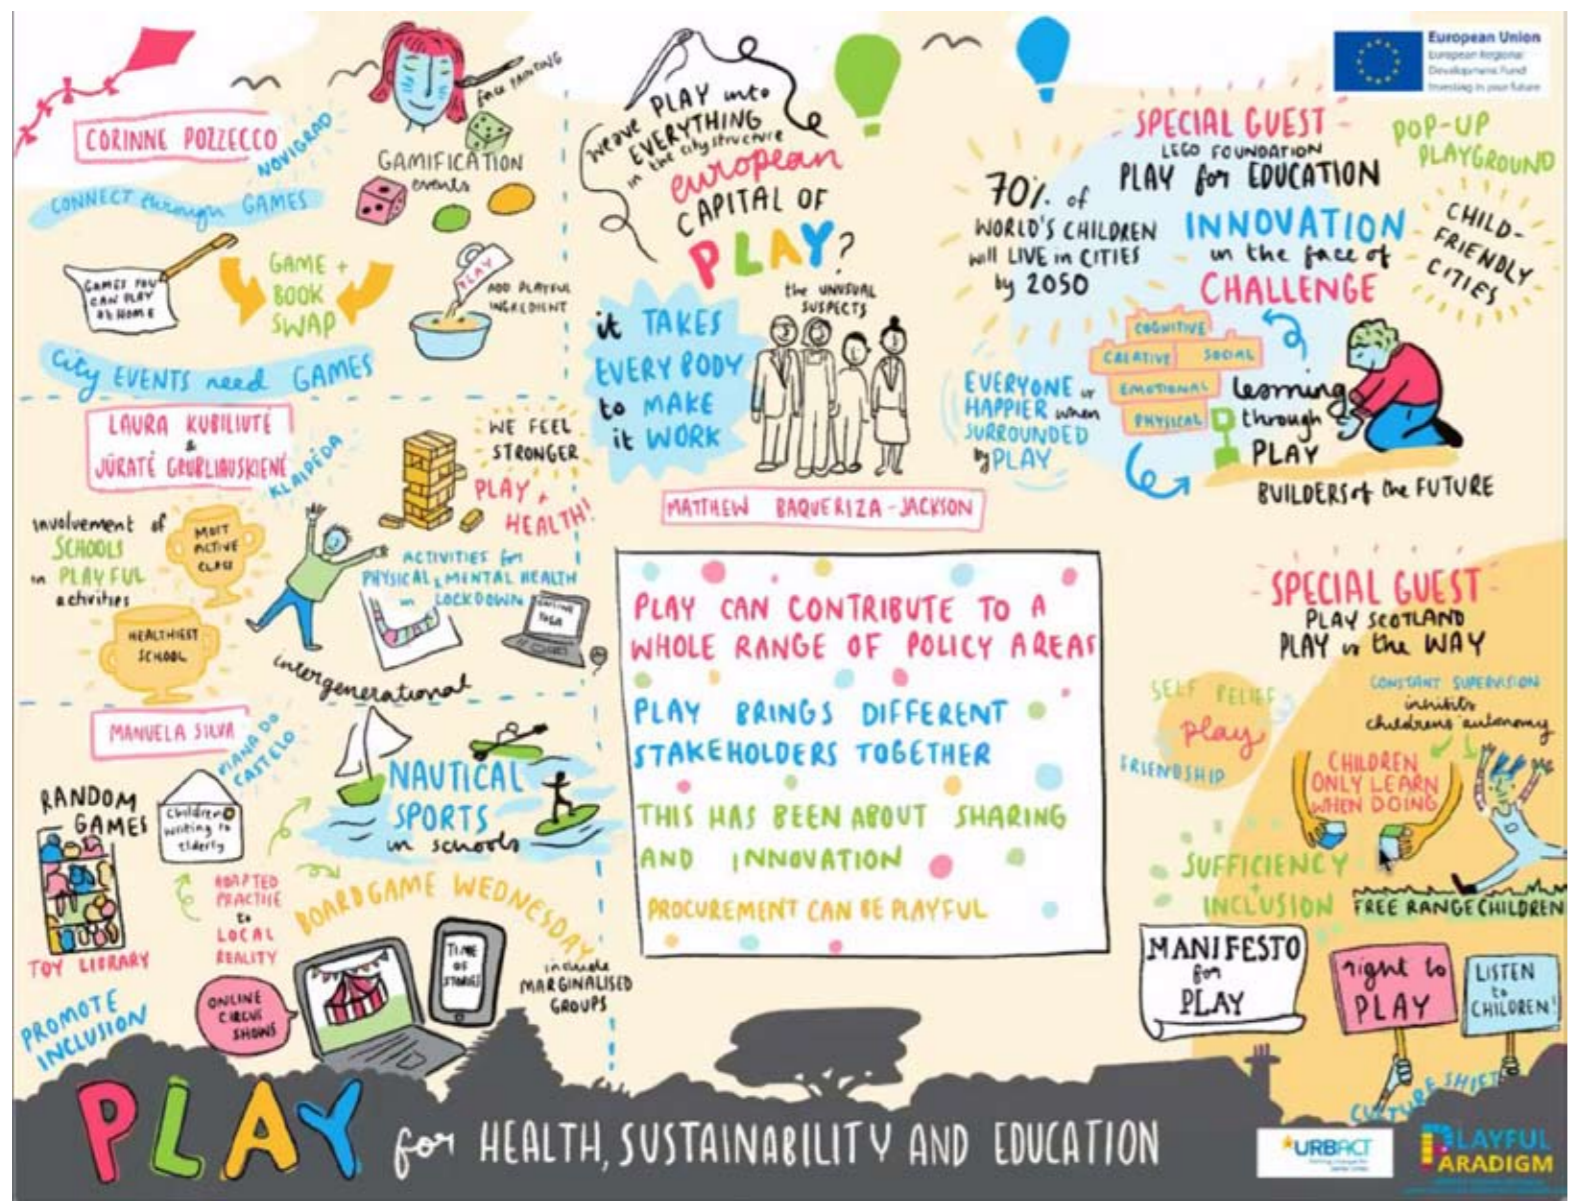 CORINNE POZZECCO
NOVIGRAD
CONNECT through GAMES
face PAINTING
GAMIFICATION
events
GAMES YOU
CAN PLAY
at HOME
GAME +
BOOK
SWAP
PLAY
ADD PLAYFUL
INGREDIENT
City EVENTS need GAMES
LAURA KUBILIUTÉ
&
JŪRATÉ GRUBLIAUSKIENÉ
KLAIPÉDA
WE FEEL
STRONGER
PLAY +
HEALTH!
involvement of
SCHOOLS
in PLAYFUL
activities
MOST
ACTIVE
CLASS
HEALTHIEST
SCHOOL
ACTIVITIES for
PHYSICAL & MENTAL HEALTH
in LOCKDOWN
ONLINE
YOGA
intergenerational
MANUELA SILVA
VIANA DO
CASTELO
RANDOM
GAMES
children
writing to
elderly
NAUTICAL
SPORTS
in schools
ADAPTED
PRACTISE
to
LOCAL
REALITY
TOY LIBRARY
BOARDGAME WEDNESDAY
TIME
OF
STORIES
include
MARGINALISED
GROUPS
PROMOTE
INCLUSION
ONLINE
CIRCUS
SHOWS
weave PLAY into
EVERYTHING
in the city structure
european
CAPITAL OF
PLAY?
it TAKES
EVERY BODY
to MAKE
it WORK
the UNUSUAL
SUSPECTS
MATTHEW BAQUERIZA-JACKSON
PLAY CAN CONTRIBUTE TO A
WHOLE RANGE OF POLICY AREAS
PLAY BRINGS DIFFERENT
STAKEHOLDERS TOGETHER
THIS HAS BEEN ABOUT SHARING
AND INNOVATION
PROCUREMENT CAN BE PLAYFUL
European Union
European Regional
Development Fund
Investing in your future
SPECIAL GUEST
LEGO FOUNDATION
PLAY for EDUCATION
POP-UP
PLAYGROUND
70% of
WORLD'S CHILDREN
will LIVE in CITIES
by 2050
INNOVATION
in the face of
CHALLENGE
CHILD-
FRIENDLY
CITIES
COGNITIVE
CREATIVE SOCIAL
EMOTIONAL
PHYSICAL
EVERYONE is
HAPPIER when
SURROUNDED
by PLAY
learning
through
PLAY
BUILDERS of the FUTURE
SPECIAL GUEST
PLAY SCOTLAND
PLAY is the WAY
SELF BELIEF
play
FRIENDSHIP
CONSTANT SUPERVISION
inhibits
childrens' autonomy
CHILDREN
ONLY LEARN
WHEN DOING
SUFFICIENCY
+
INCLUSION
FREE RANGE CHILDREN
MANIFESTO
for
PLAY
right to
PLAY
LISTEN
to
CHILDREN!
CULTURE SHIFT
PLAY for HEALTH, SUSTAINABILITY AND EDUCATION
URBACT
PLAYFUL
PARADIGM